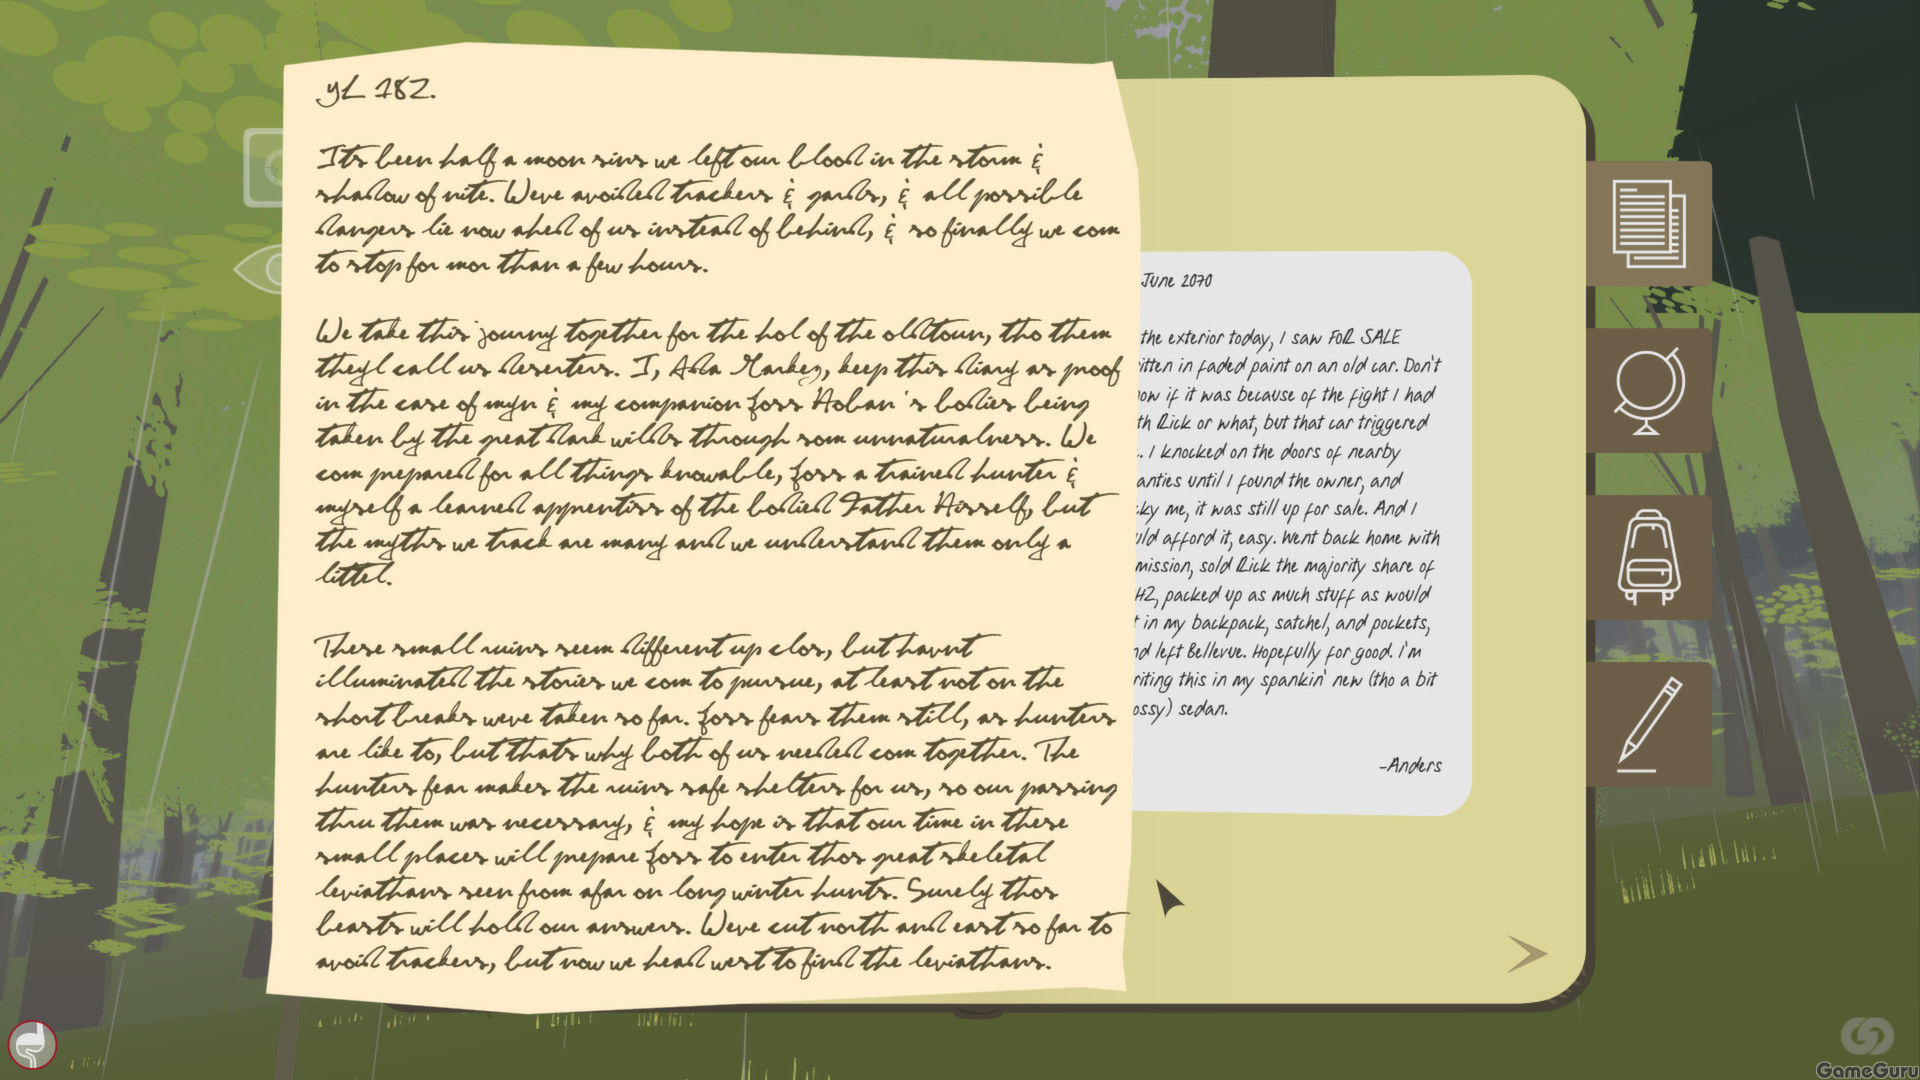 yL 182.
Its been half a moon sins we left our blood in the storm &
shadow of nite. Weve avoided trackers & gards, & all possible
dangers lie now ahed of us insted of behind, & so finally we com
to stop for mor than a few hours.
We take this journy together for the hol of the oldtoun, tho them
theyl call us deserters. I, Ada Markez, keep this diary as proof
in the case of myn & my companion Joss Hoban's bodies being
taken by the great dark wilds through som unnaturalness. We
com prepared for all things knowable, Joss a trained hunter &
myself a learned apprentiss of the bodied Father Hisself, but
the myths we track are many and we understand them only a
littel.
These small ruins seem different up clos, but havnt
illuminated the stories we com to pursue, at least not on the
short breaks weve taken so far. Joss fears them still, as hunters
are like to, but thats why both of us needed com together. The
hunters fear makes the ruins safe shelters for us, so our passing
thru them was necessary, & my hope is that our time in these
small places will prepare Joss to enter thos great skeletal
leviathans seen from afar on long winter hunts. Surely thos
beasts will hold our answers. Weve cut north and east so far to
avoid trackers, but now we head west to find the leviathans.
June 2070
the exterior today, I saw FOR SALE
itten in faded paint on an old car. Don't
ow if it was because of the fight I had
th Rick or what, but that car triggered
. I knocked on the doors of nearby
anties until I found the owner, and
cky me, it was still up for sale. And I
uld afford it, easy. Went back home with
mission, sold Rick the majority share of
H2, packed up as much stuff as would
t in my backpack, satchel, and pockets,
nd left Bellevue. Hopefully for good. I'm
riting this in my spankin' new (tho a bit
ossy) sedan.
-Anders
GameGuru